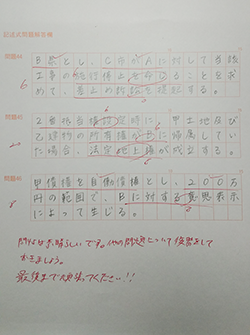 記述式問題解答欄
問題44
B県とし、C市がAに対して当該
工事の施行停止を命ずることを求
めて、義務付け訴訟を提起する。
6
問題45
乙建物抵当権設定時に、甲土地及び
乙建物の所有権が に帰属してい
た場合、法定地上権が成立する。
20
6
問題46
甲債権を自働債権とし、200万
円の範囲で、Bに対する意思表示
によって生じる。
8
問45は素晴らしいです。他の問題について復習をして
おきましょう。
最後まで頑張ってください!!